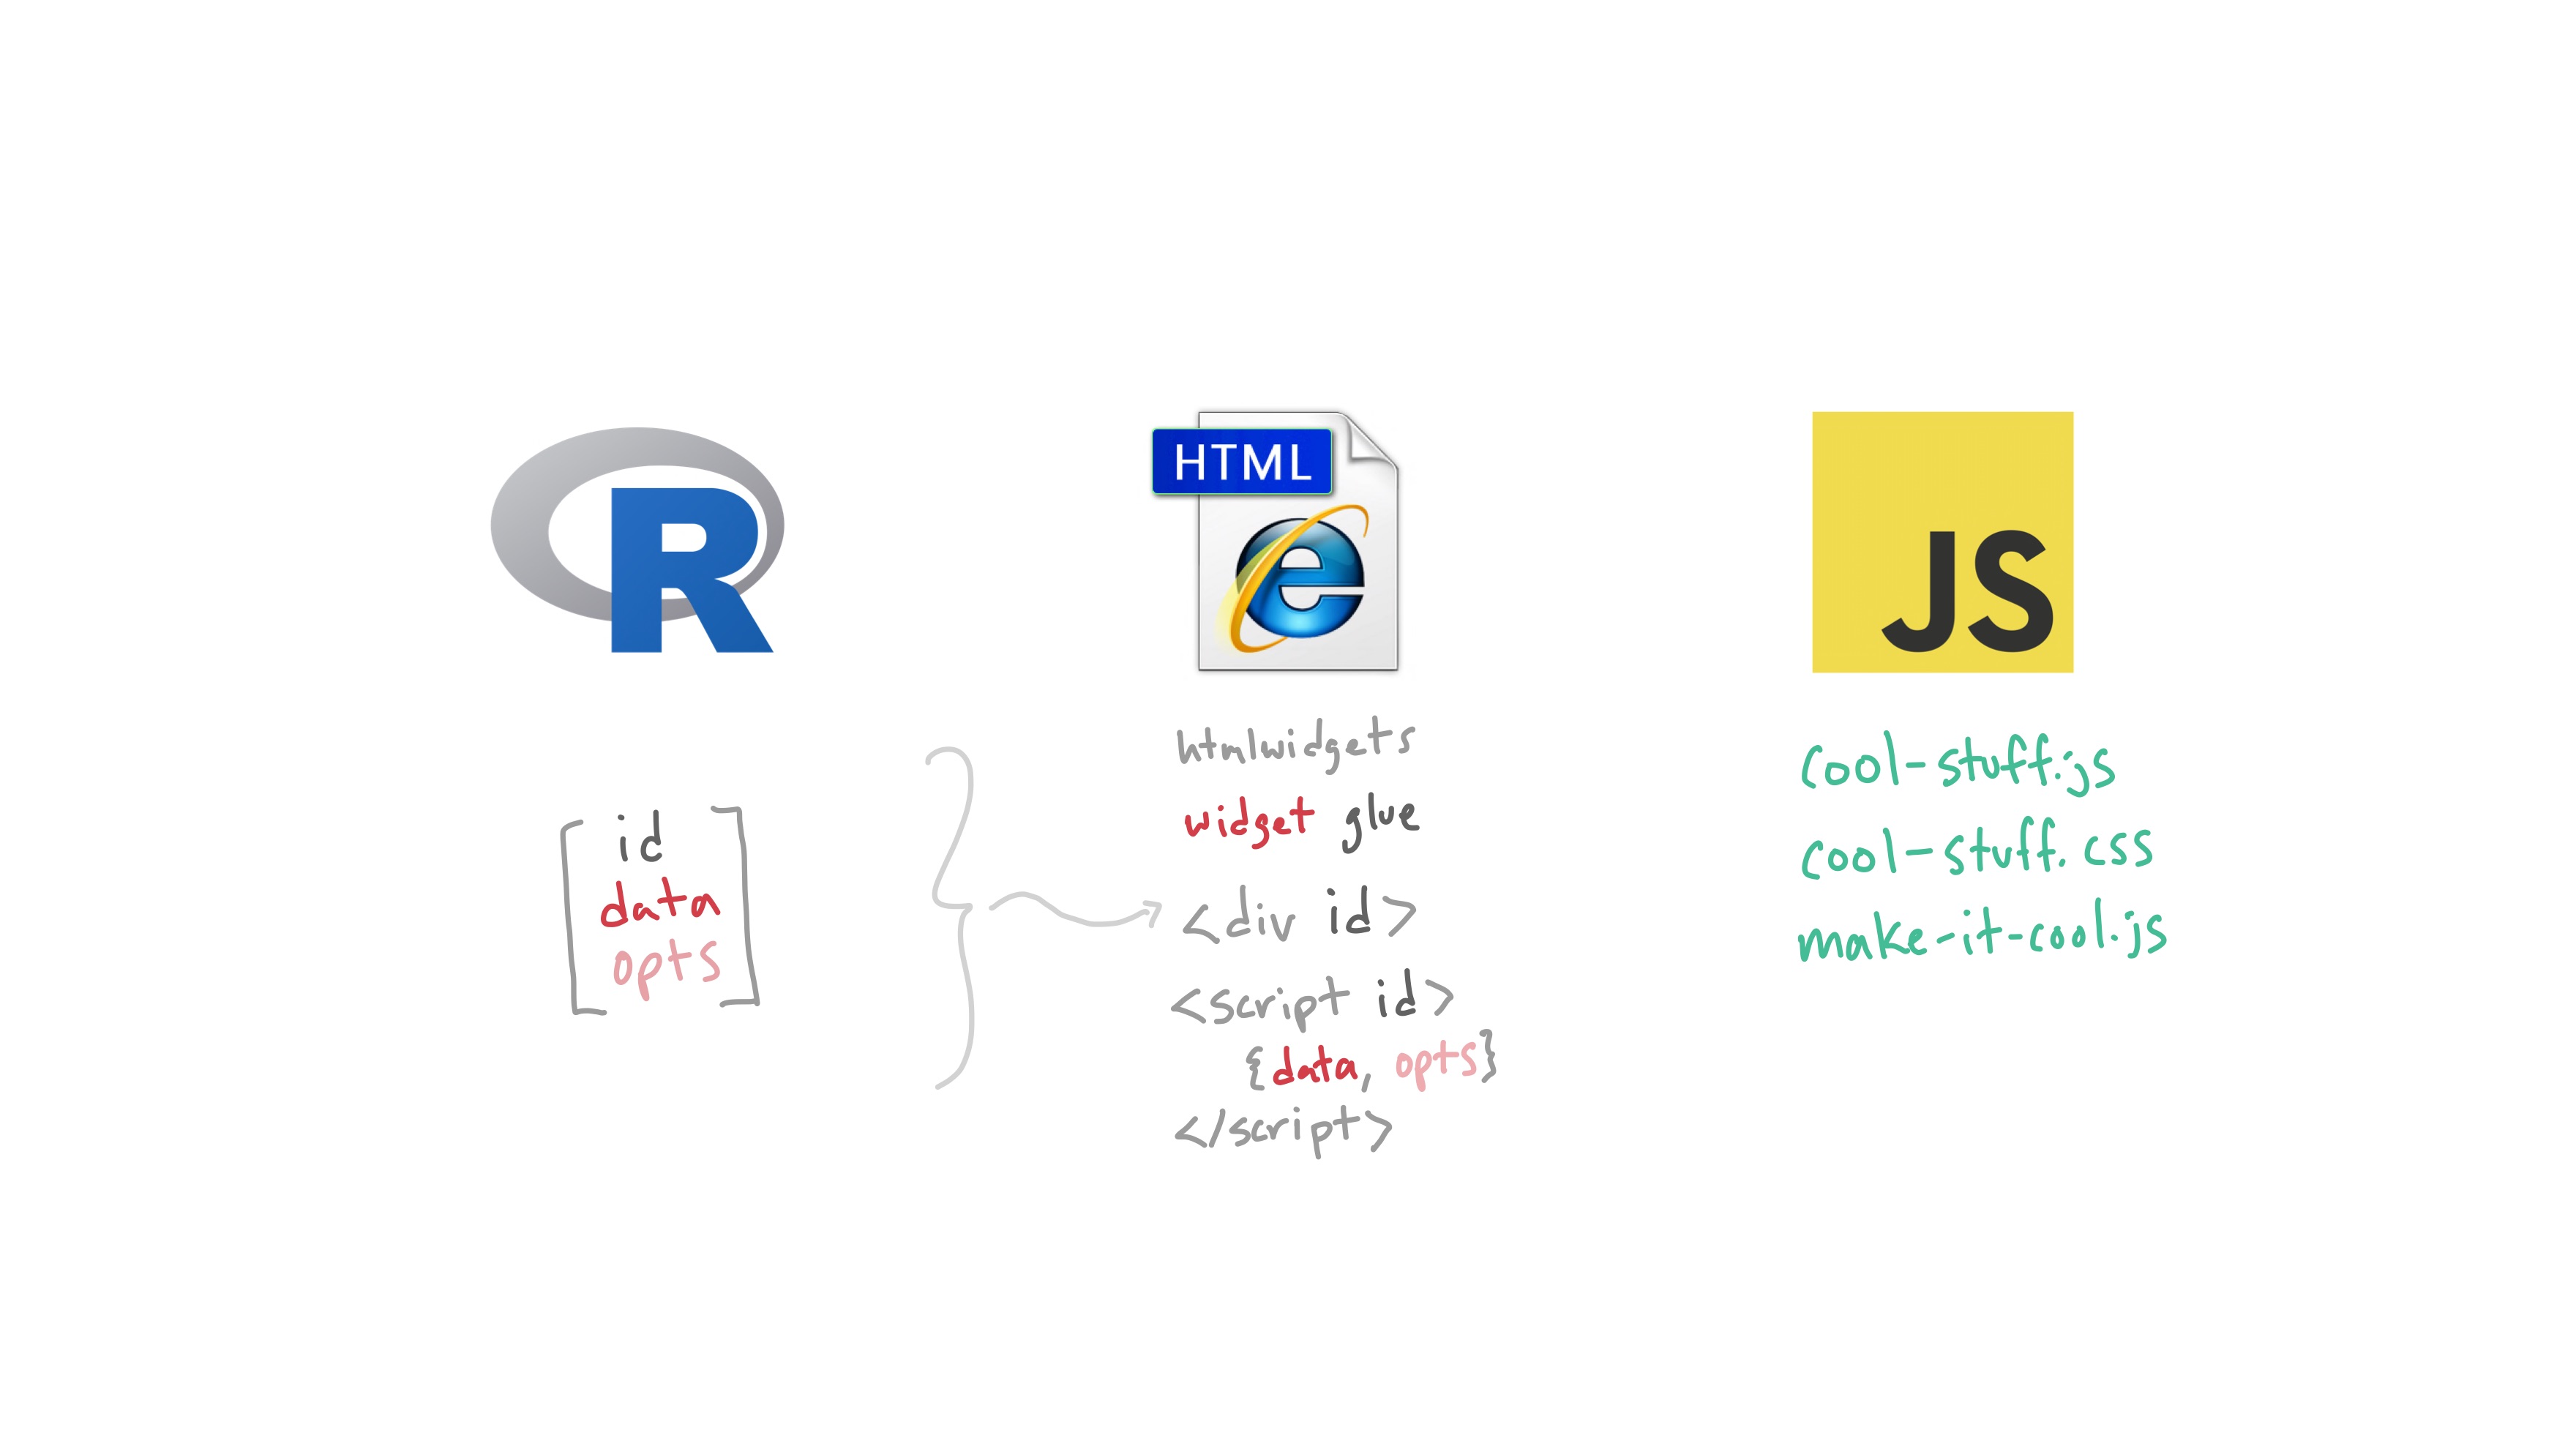 R
id
data
opts
HTML
e
htmlwidgets
widget glue
<div id>
<script id>
{data, opts}
</script>
JS
cool-stuff.js
cool-stuff.css
make-it-cool.js